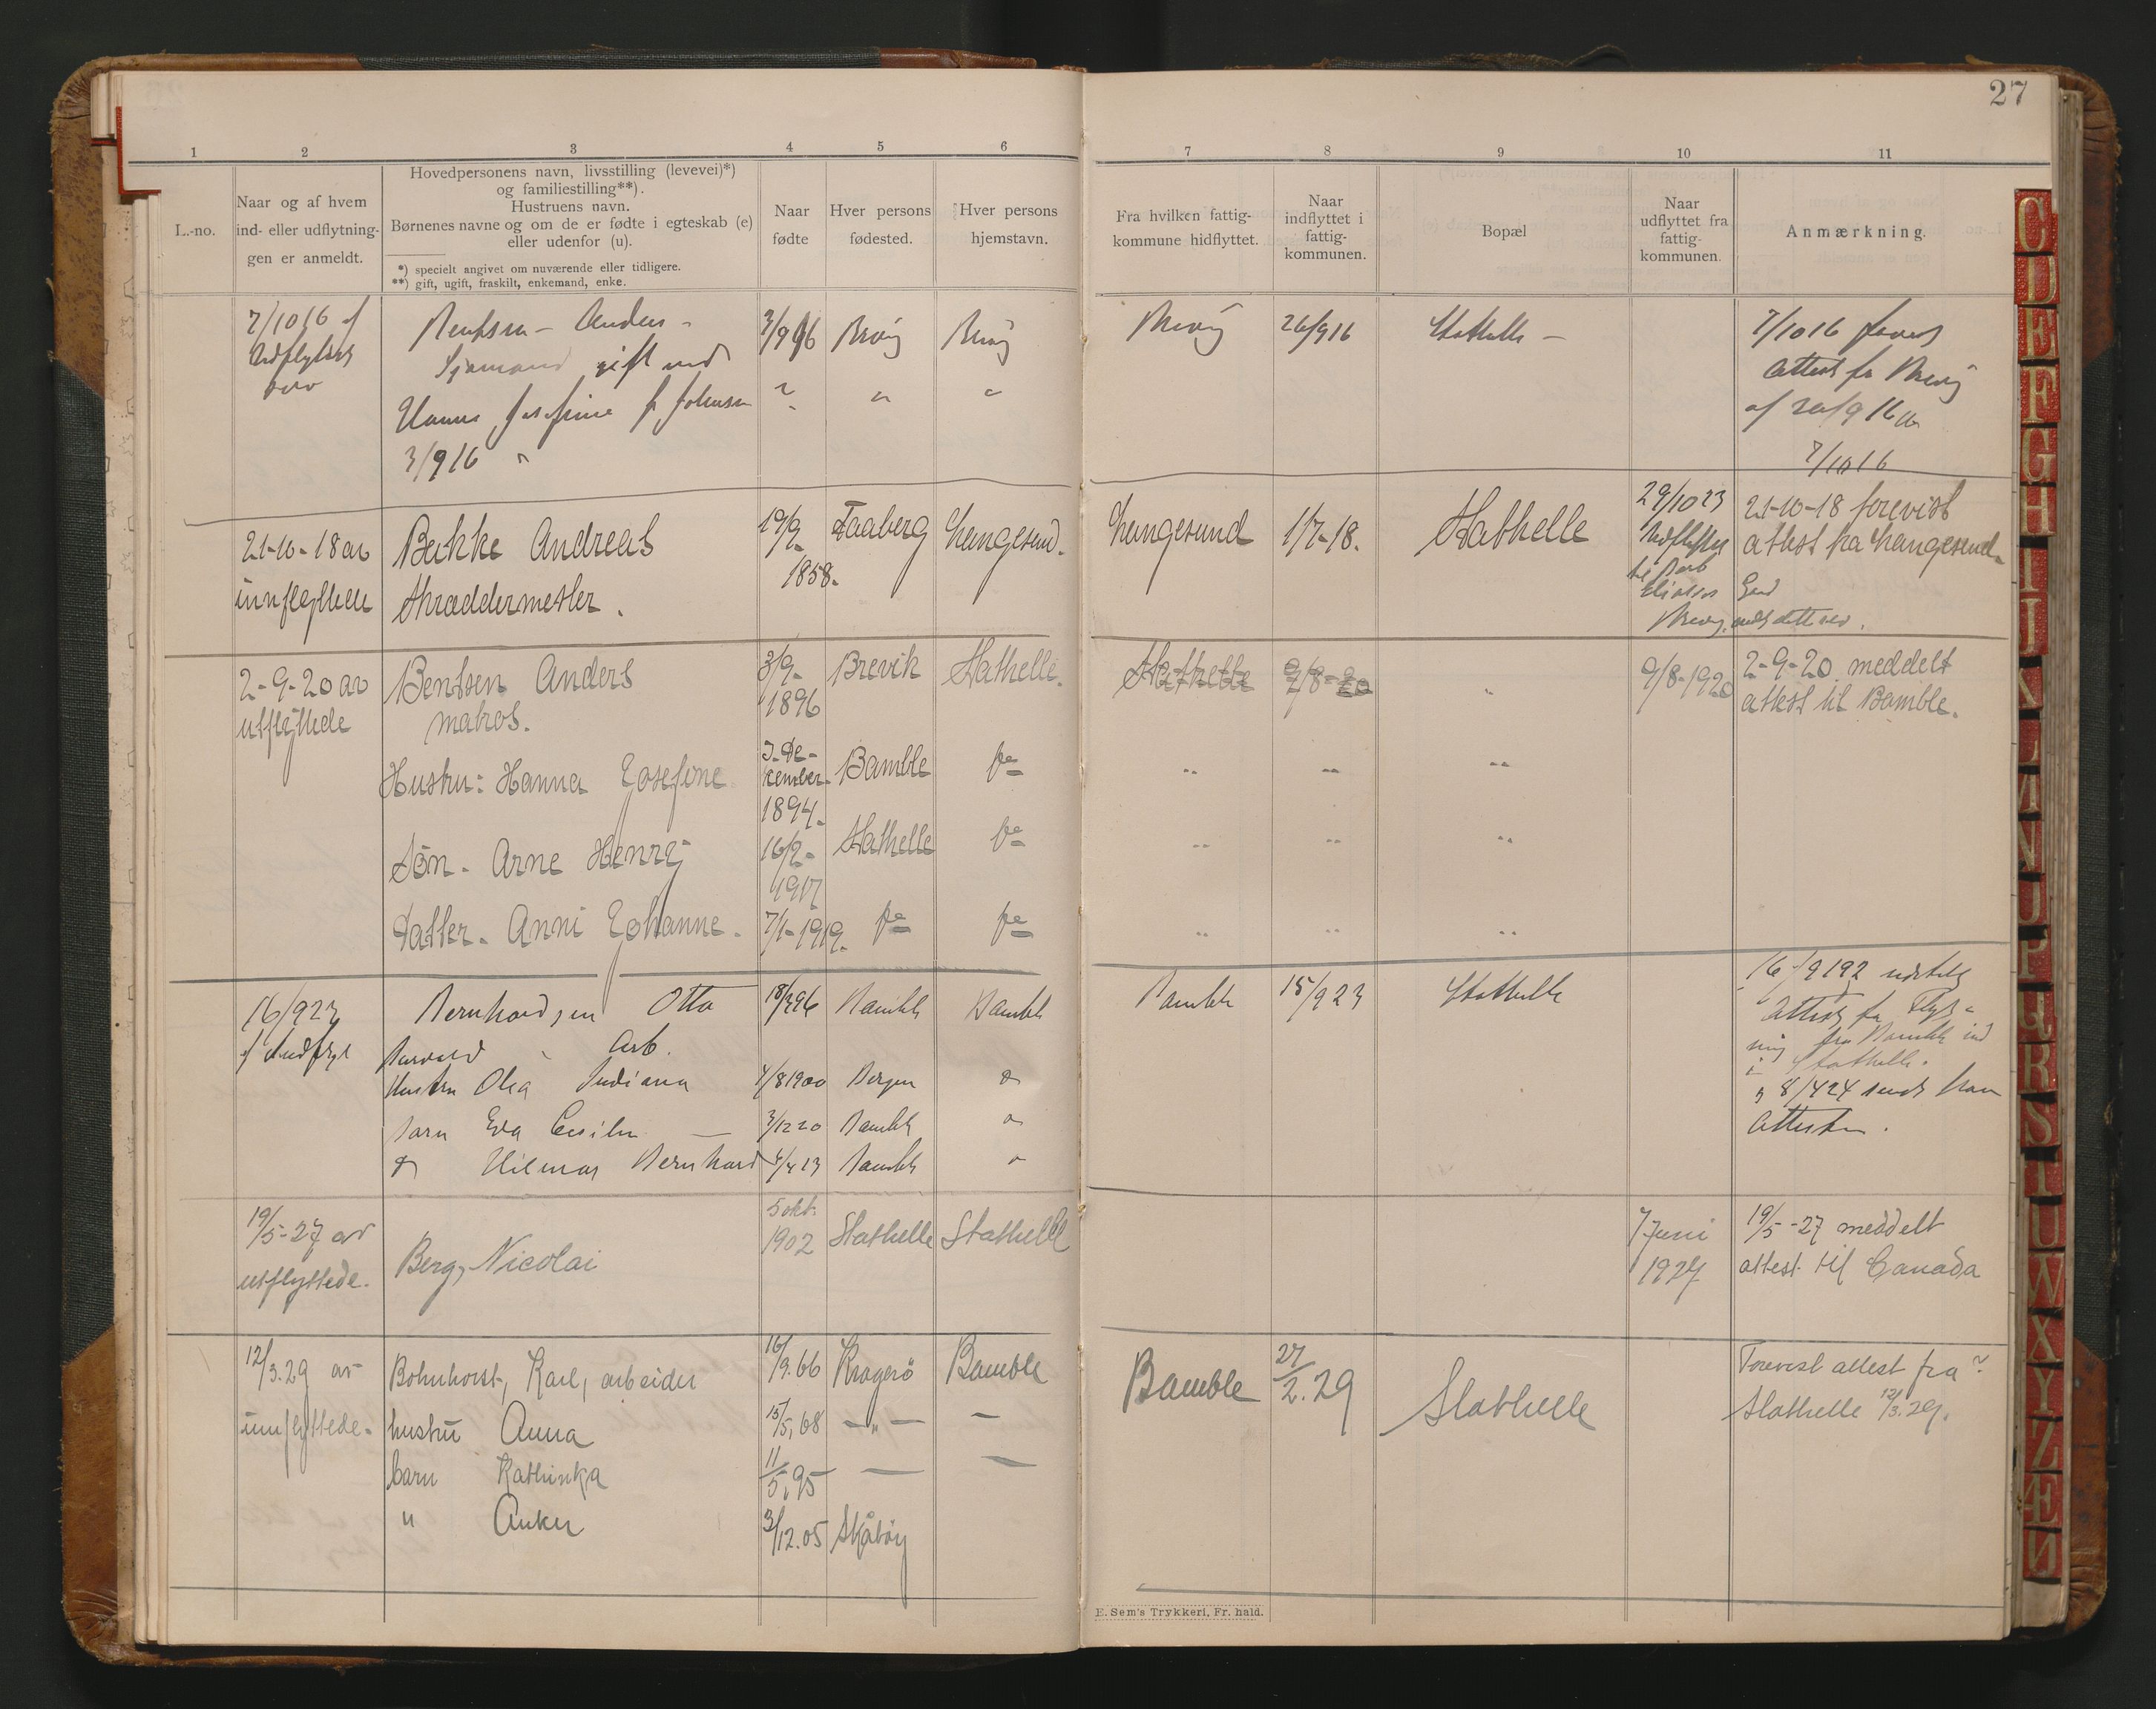 27
1 2 3 4 5 6 7 8 9 10 11
L.-no.
Naar og af hvem
ind- eller udflytnin-
gen er anmeldt.
Hovedpersonens navn, livsstilling (levevei)*)
og familiestilling**).
Hustruens navn.
Børnenes navne og om de er fødte i egteskab (e)
eller udenfor (u).
*) specielt angivet om nuværende eller tidligere.
**) gift, ugift, fraskilt, enkemand, enke.
Naar
fødte
Hver persons
fødested.
Hver persons
hjemstavn.
Fra hvilken fattig-
kommune hidflyttet.
Naar
indflyttet i
fattig-
kommunen.
Bopæl
Naar
udflyttet fra
fattig-
kommunen.
Anmærkning.
7/10 16 af
Bentsen - Anders -
Sjømand gift med
Hanna Josefine f. Johnsen
3/9 16 "
3/9 96
Brevig
Brevig
Brevig
26/9 16
Stathelle -
7/10 16
Attest fra Brevig
af 20/9 16
7/10 16
21-10-18 av
innflyttede
Bakke Andreas
Skræddermester.
19/9-
1858.
Faaberg
Langesund.
Langesund
1/7-18.
Stathelle
29/10 23
Brevig
21-10-18 forevist
attest fra Langesund.
2-9-20 av
utflyttede
Bentsen Anders
matros.
3/9-
1896
Brevik
Stathelle.
Stathelle
9/8-20
9/8-1920
2-9-20. meddelt
attest til Bamble.
Hustru: Hanna Josefine.
3-De-
cember-
1894.
Bamble
do
Søn. Arne Henry
16/2-
1917
Stathelle
do
Datter. Anni Johanne.
7/1-1919.
do
do
16/9 23
Bernhardsen Otto
Arb.
18/3 96
Bamble
Bamble
Bamble
15/9 23
Stathelle
fra Bamble ind
i Stathelle.
8/4 24
Attesten.
Hustru Olga Indiana
4/8 1900
Bergen
Barn Eva Cecilie
3/12 20
Bamble
Hilmar Bernhard
4/4 23
Bamble
19/5-27 av
utflyttede.
Berg, Nicolai
5 okt.
1902
Stathelle
Stathelle
7 Juni
1927
19/5-27 meddelt
attest til Canada
12/3.29 av
innflyttede.
Bohnhorst, Karl, arbeider
16/9.66
Kragerø
Bamble
Bamble
27/2.29
Stathelle
Forevist attest fra
Stathelle 12/3.29.
hustru Anna
15/5,68
— " —
—
barn Kathinka
11/5,95
—
—
" Anker
3/12.05
Skåtøy
E. Sem's Trykkeri, Fr. hald.
C D E F G H I J K L M N O P Q R S T U W X Y Z Æ Ø